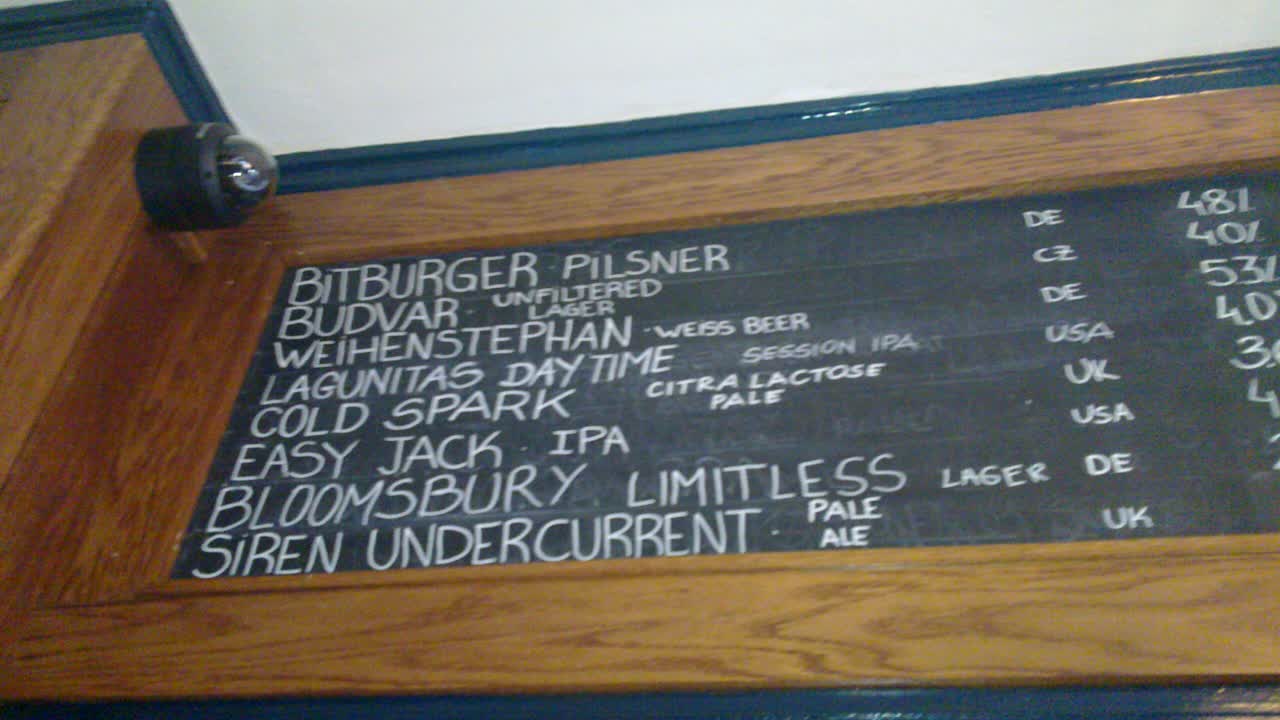 BITBURGER · PILSNER DE 48%
BUDVAR · UNFILTERED LAGER CZ 40%
WEIHENSTEPHAN · WEISS BEER DE 53%
LAGUNITAS DAYTIME SESSION IPA USA 40
COLD SPARK CITRA LACTOSE PALE UK
EASY JACK · IPA USA 4
BLOOMSBURY LIMITLESS LAGER DE
SIREN UNDERCURRENT · PALE ALE UK